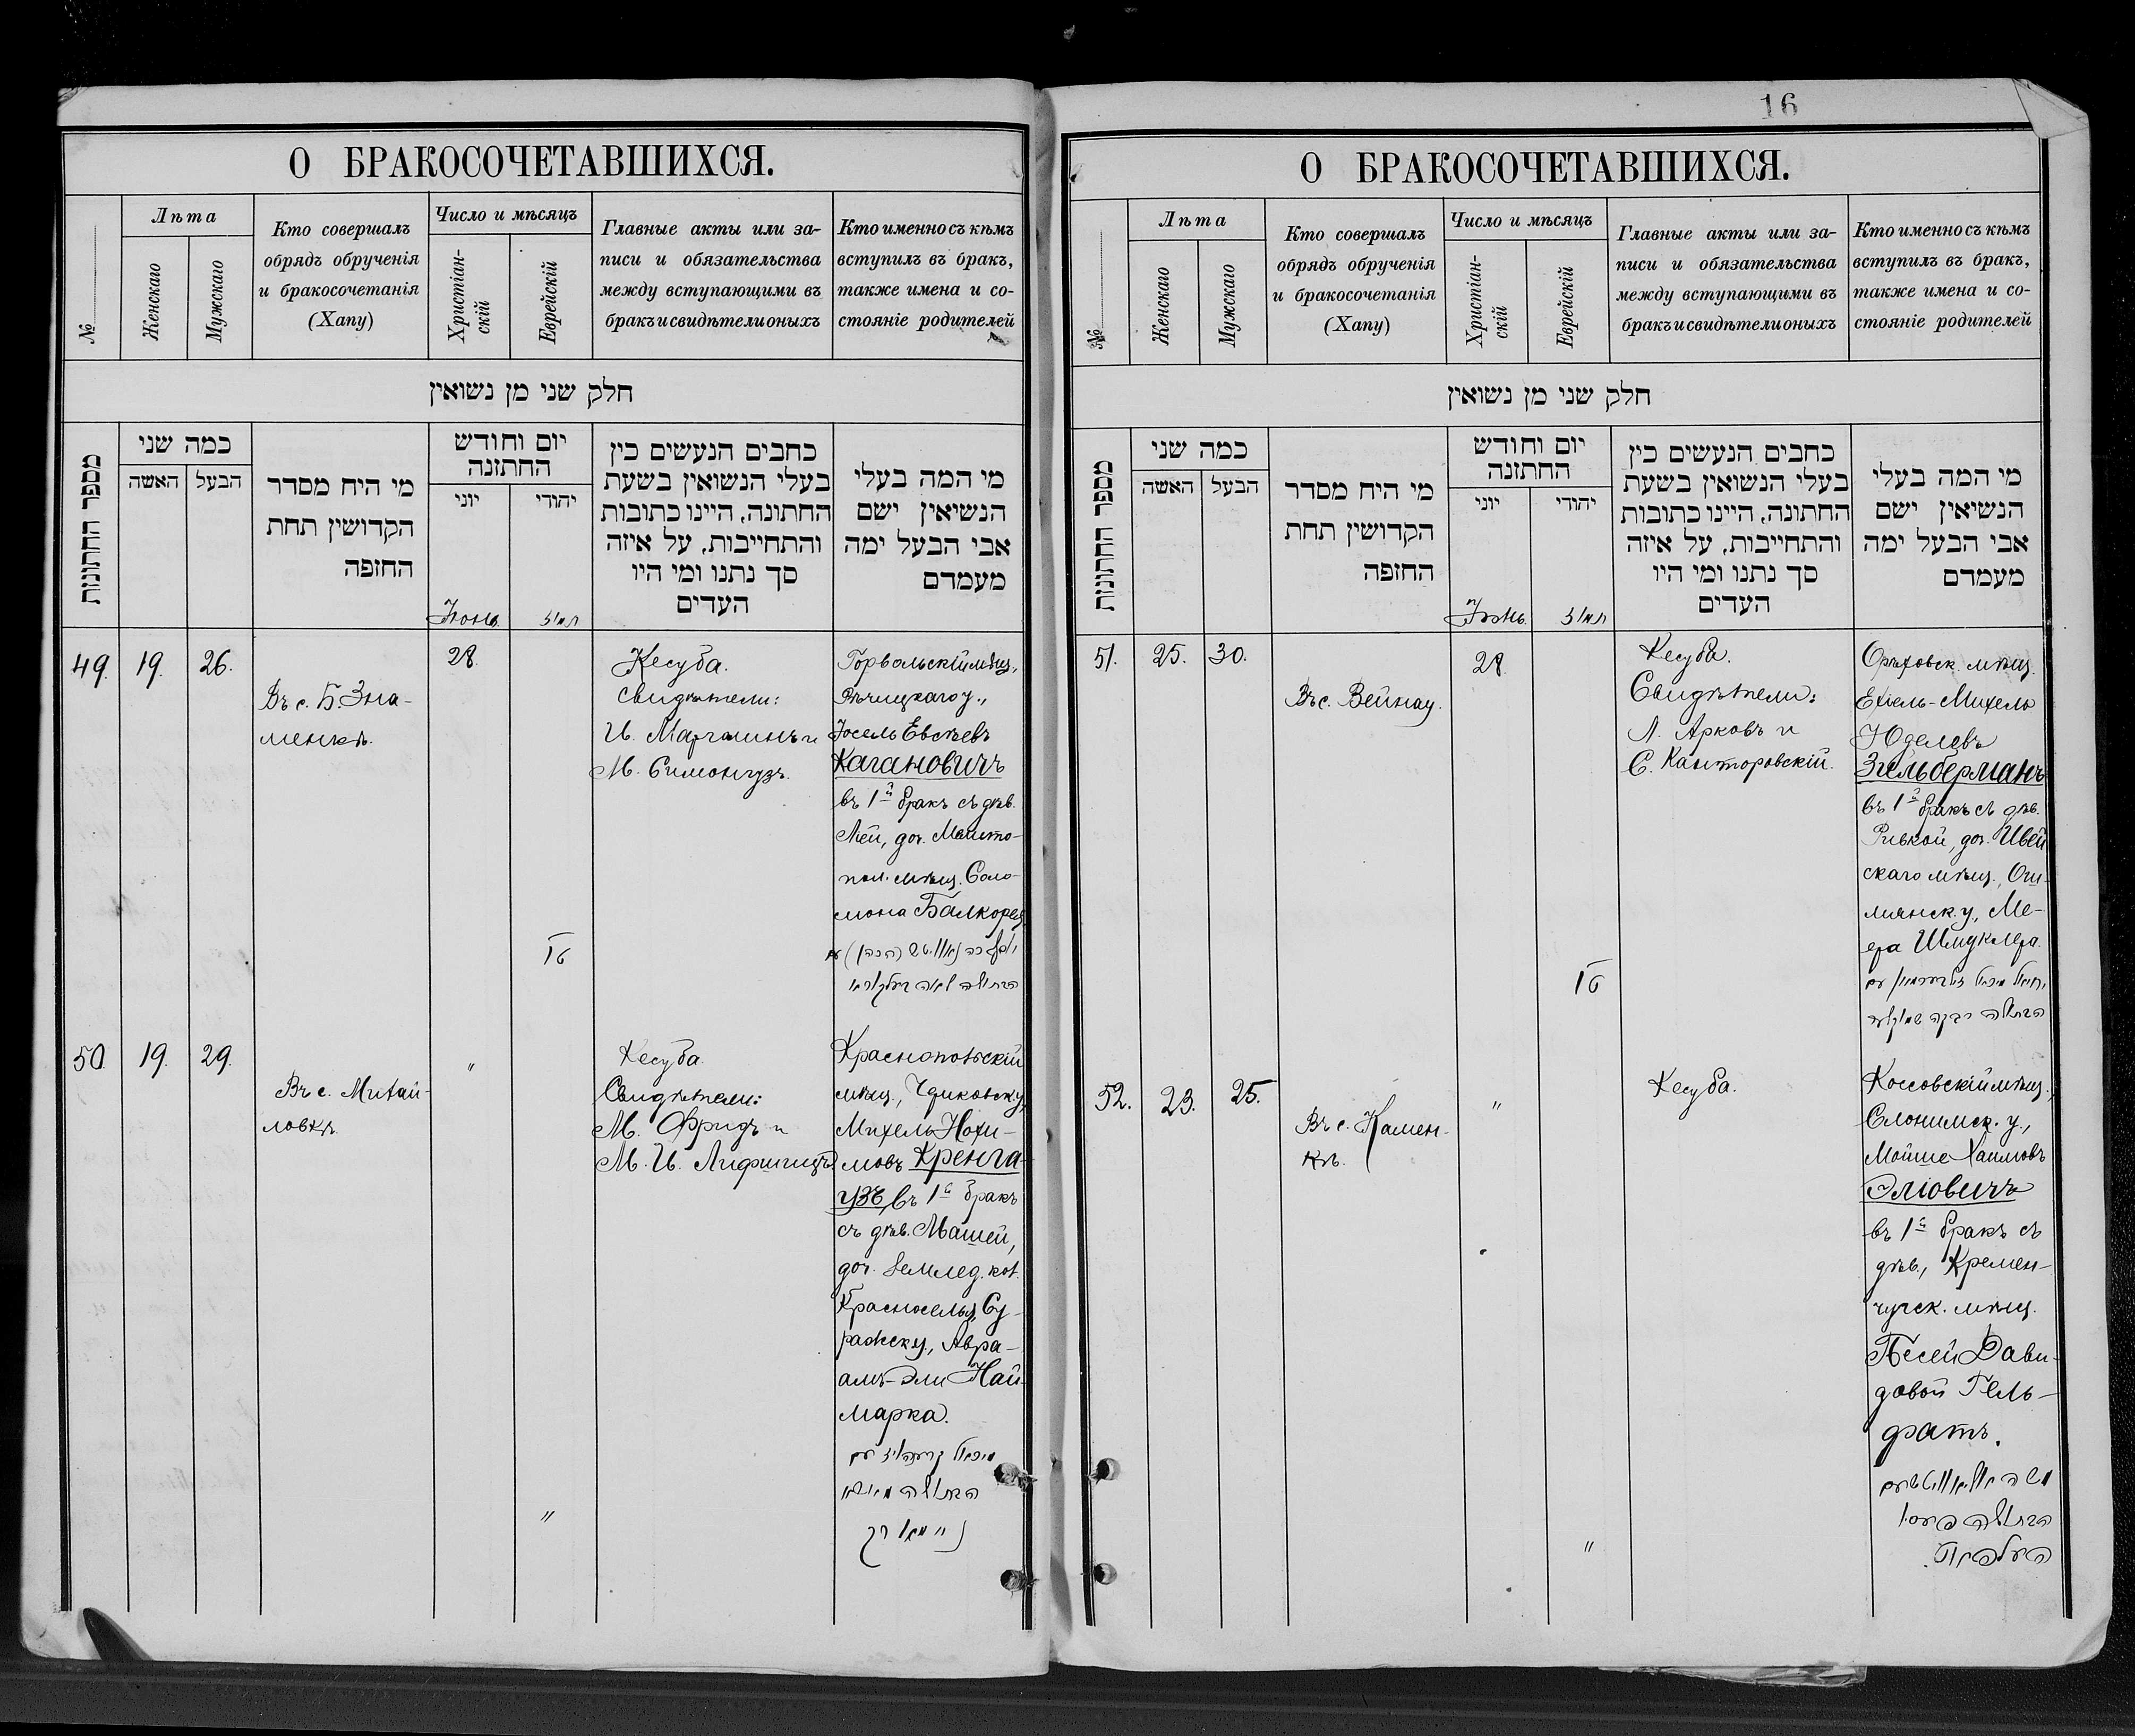 О БРАКОСОЧЕТАВШИХСЯ.
№
Лѣта
Женскаго
Мужскаго
Кто совершалъ
обрядъ обрученія
и бракосочетанія
(Хапу)
Число и мѣсяцъ
Христіан-
скій
Еврейскій
Главные акты или за-
писи и обязательства
между вступающими въ
бракъ и свидѣтели оныхъ
Кто именно съ кѣмъ
вступилъ въ бракъ,
также имена и со-
стояніе родителей
חלק שני מן נשואין
מספר החתונות
כמה שני
האשה
הבעל
מי היח מסדר
הקדושין תחת
החופה
יום וחודש
החתונה
יוני
יהודי
Іюнь
תמוז
כחבים הנעשים כין
בעלי הנשואין בשעת
החתונה, היינו כתובות
והתחייבות, על איזה
סך נתנו ומי היו
העדים
מי המה בעלי
הנשיאין ישם
אבי הבעל ימה
מעמדם
49.
19.
26.
Въ с. Б. Зна-
менкѣ.
28.
Кесуба.
Свидѣтели:
И. Марголинъ и
М. Симонгузъ.
Горвольскій мѣщ.,
Рѣчицкаго у.,
Іосель Евсѣевъ
Кагановичъ
въ 1й бракъ съ дѣв.
Леи, доч. Мелито-
пол. мѣщ. Соло-
мона Балкорея
הבתולה
50.
19.
29.
Въ с. Михай-
ловкѣ.
"
Кесуба
Свидѣтели:
М. Фридъ и
М. И. Лифшицъ
Краснопольскій
мѣщ., Чериковск. у.,
Михель Нохи-
мовъ Кренга-
узъ, въ 1й бракъ
съ дѣв. Машей,
доч. землед. кол.
Красноселья, Су-
ражск. у., Авра-
амъ-Эли Най-
марка.
מיכאל קרענהויז עם
הבתולה
ניימארק
"
16
О БРАКОСОЧЕТАВШИХСЯ.
№
Лѣта
Женскаго
Мужскаго
Кто совершалъ
обрядъ обрученія
и бракосочетанія
(Хапу)
Число и мѣсяцъ
Христіан-
скій
Еврейскій
Главные акты или за-
писи и обязательства
между вступающими въ
бракъ и свидѣтели оныхъ
Кто именно съ кѣмъ
вступилъ въ бракъ,
также имена и со-
стояніе родителей
חלק שני מן נשואין
מספר החתונות
כמה שני
האשה
הבעל
מי היח מסדר
הקדושין תחת
החופה
יום וחודש
החתונה
יוני
יהודי
Іюнь
תמוז
כחבים הנעשים כין
בעלי הנשואין בשעת
החתונה, היינו כתובות
והתחייבות, על איזה
סך נתנו ומי היו
העדים
מי המה בעלי
הנשיאין ישם
אבי הבעל ימה
מעמדם
51.
25.
30.
Въ с. Вейнау.
28
Кесуба.
Свидѣтели:
Л. Арковъ и
С. Канторовскій.
Орѣховск. мѣщ.
Ехіель-Михель
Юделевъ
Зильберманъ
въ 1й бракъ съ дѣв.
Ривкой, доч. Ивей
скаго мѣщ., Ош-
мянск. у., Ме-
ера Шмуклера.
יחיאל מיכאל זילבערמאן עם
הבתולה רבקה שמוקלער
52.
23.
25.
Въ с. Камен-
кѣ.
"
Кесуба.
Коссовскій мѣщ.,
Слонимск. у.,
Мойше Хаимовъ
Эліовичъ
въ 1й бракъ съ
дѣв., Кремен-
чугск. мѣщ.
Песей Дави-
довой Гель-
фатъ.
הבתולה
"